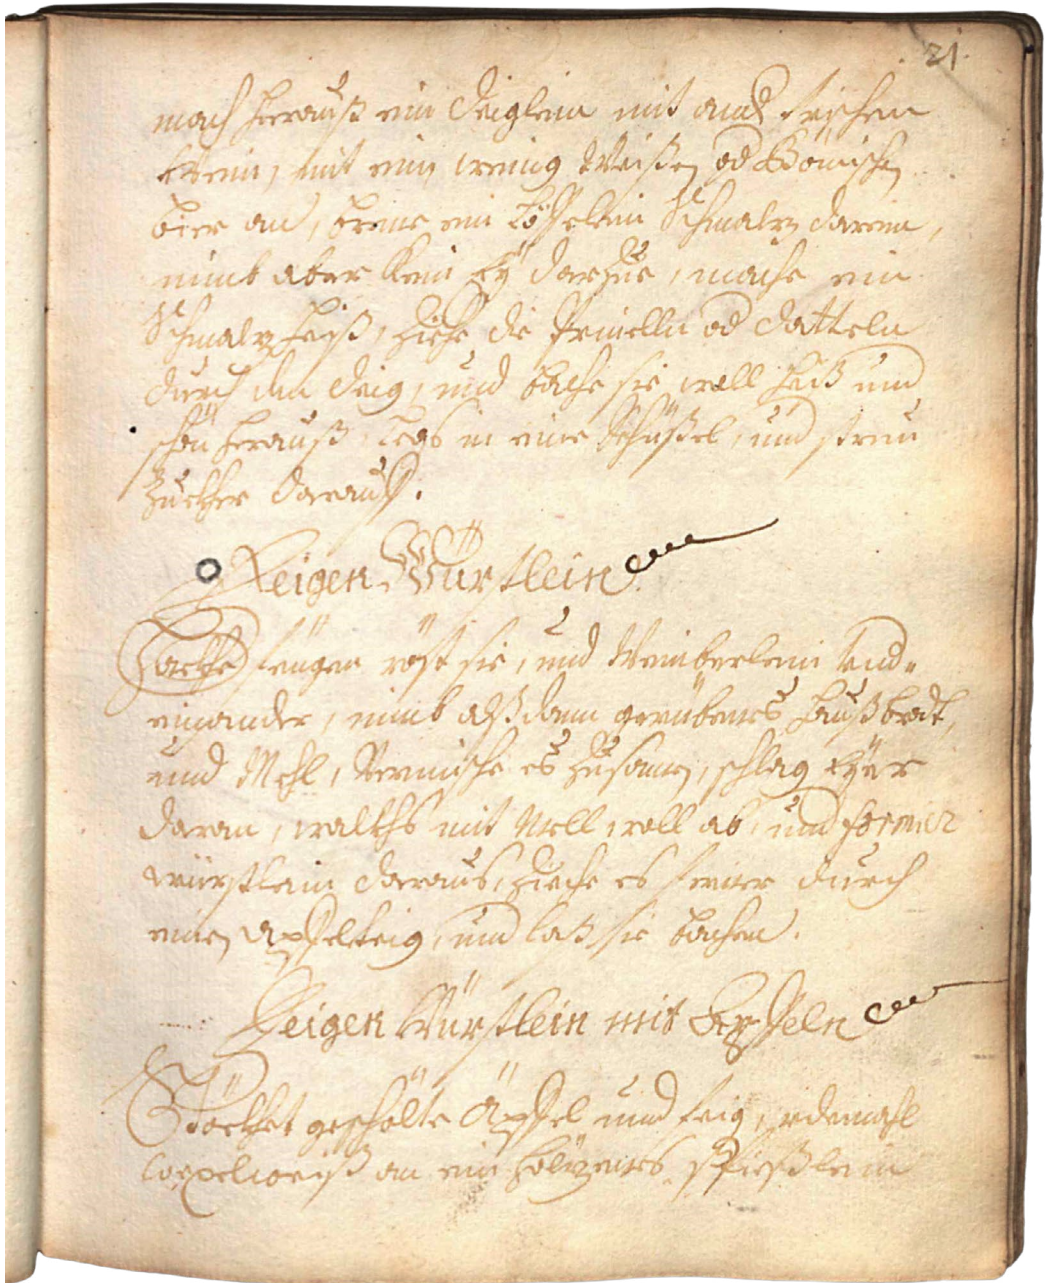 21.
mach herauß ein Teiglein mit and frischen
Wein, mit einem wenig Weißen od Bömischen
bier an, brenne ein Löffelein Schmalz darein,
nimb aber kein Ey darzue, mache ein
Schmalz heiß, Ziehe die Prinelln od Datteln
durch den Teig, und bache sie woll heiß und
schön herauß, legs in eine Schüßel, und streu
Zucker darauf.
Feigen Würstlein
Hackhe feigen röst sie, und Weinberlein und-
einander, nimb alßdann geribenes haußbrodt,
und Mehl, Vermische es Zusamen, schlag Eyer
daran, walkhs mit Mell woll ab, und formier
würstlein daraus, Ziehe es ferner durch
einen Apffelteig, und laß sie bachen.
Feigen Würstlein mit Epffeln
Steckhet geschölte Äpffel und feig, edemahl
an ein hölzenes spießlein